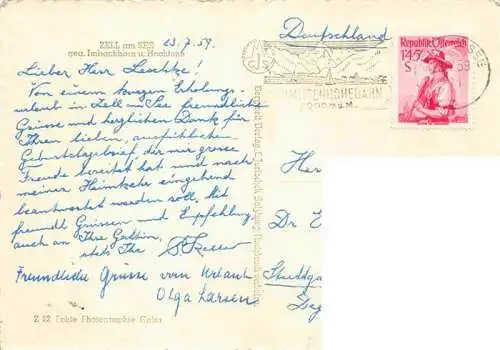 ZELL am SEE
geg. Imbachhorn u. Hochtenn
23.7.59.
Deutschland
Lieber Herr
Von einem kurzen Erholungs-
urlaub in Zell am See freundliche
Grüsse und herzlichen Dank für
Ihren lieben, ausführlichen
Geburtstagsbrief der mir grosse
Freude bereitet hat und nach
meiner Heimkehr eingehend
beantwortet werden soll. Mit
freundl Grüssen und Empfehlung
auch an Ihre Gattin,
stets Ihr
Freundliche Grüsse vom Urlaub
Olga Larsen
Z 22 Echte Photographie Color
Republik Österreich
1.45
S
59
2000 m
Her
Dr
Stuttga